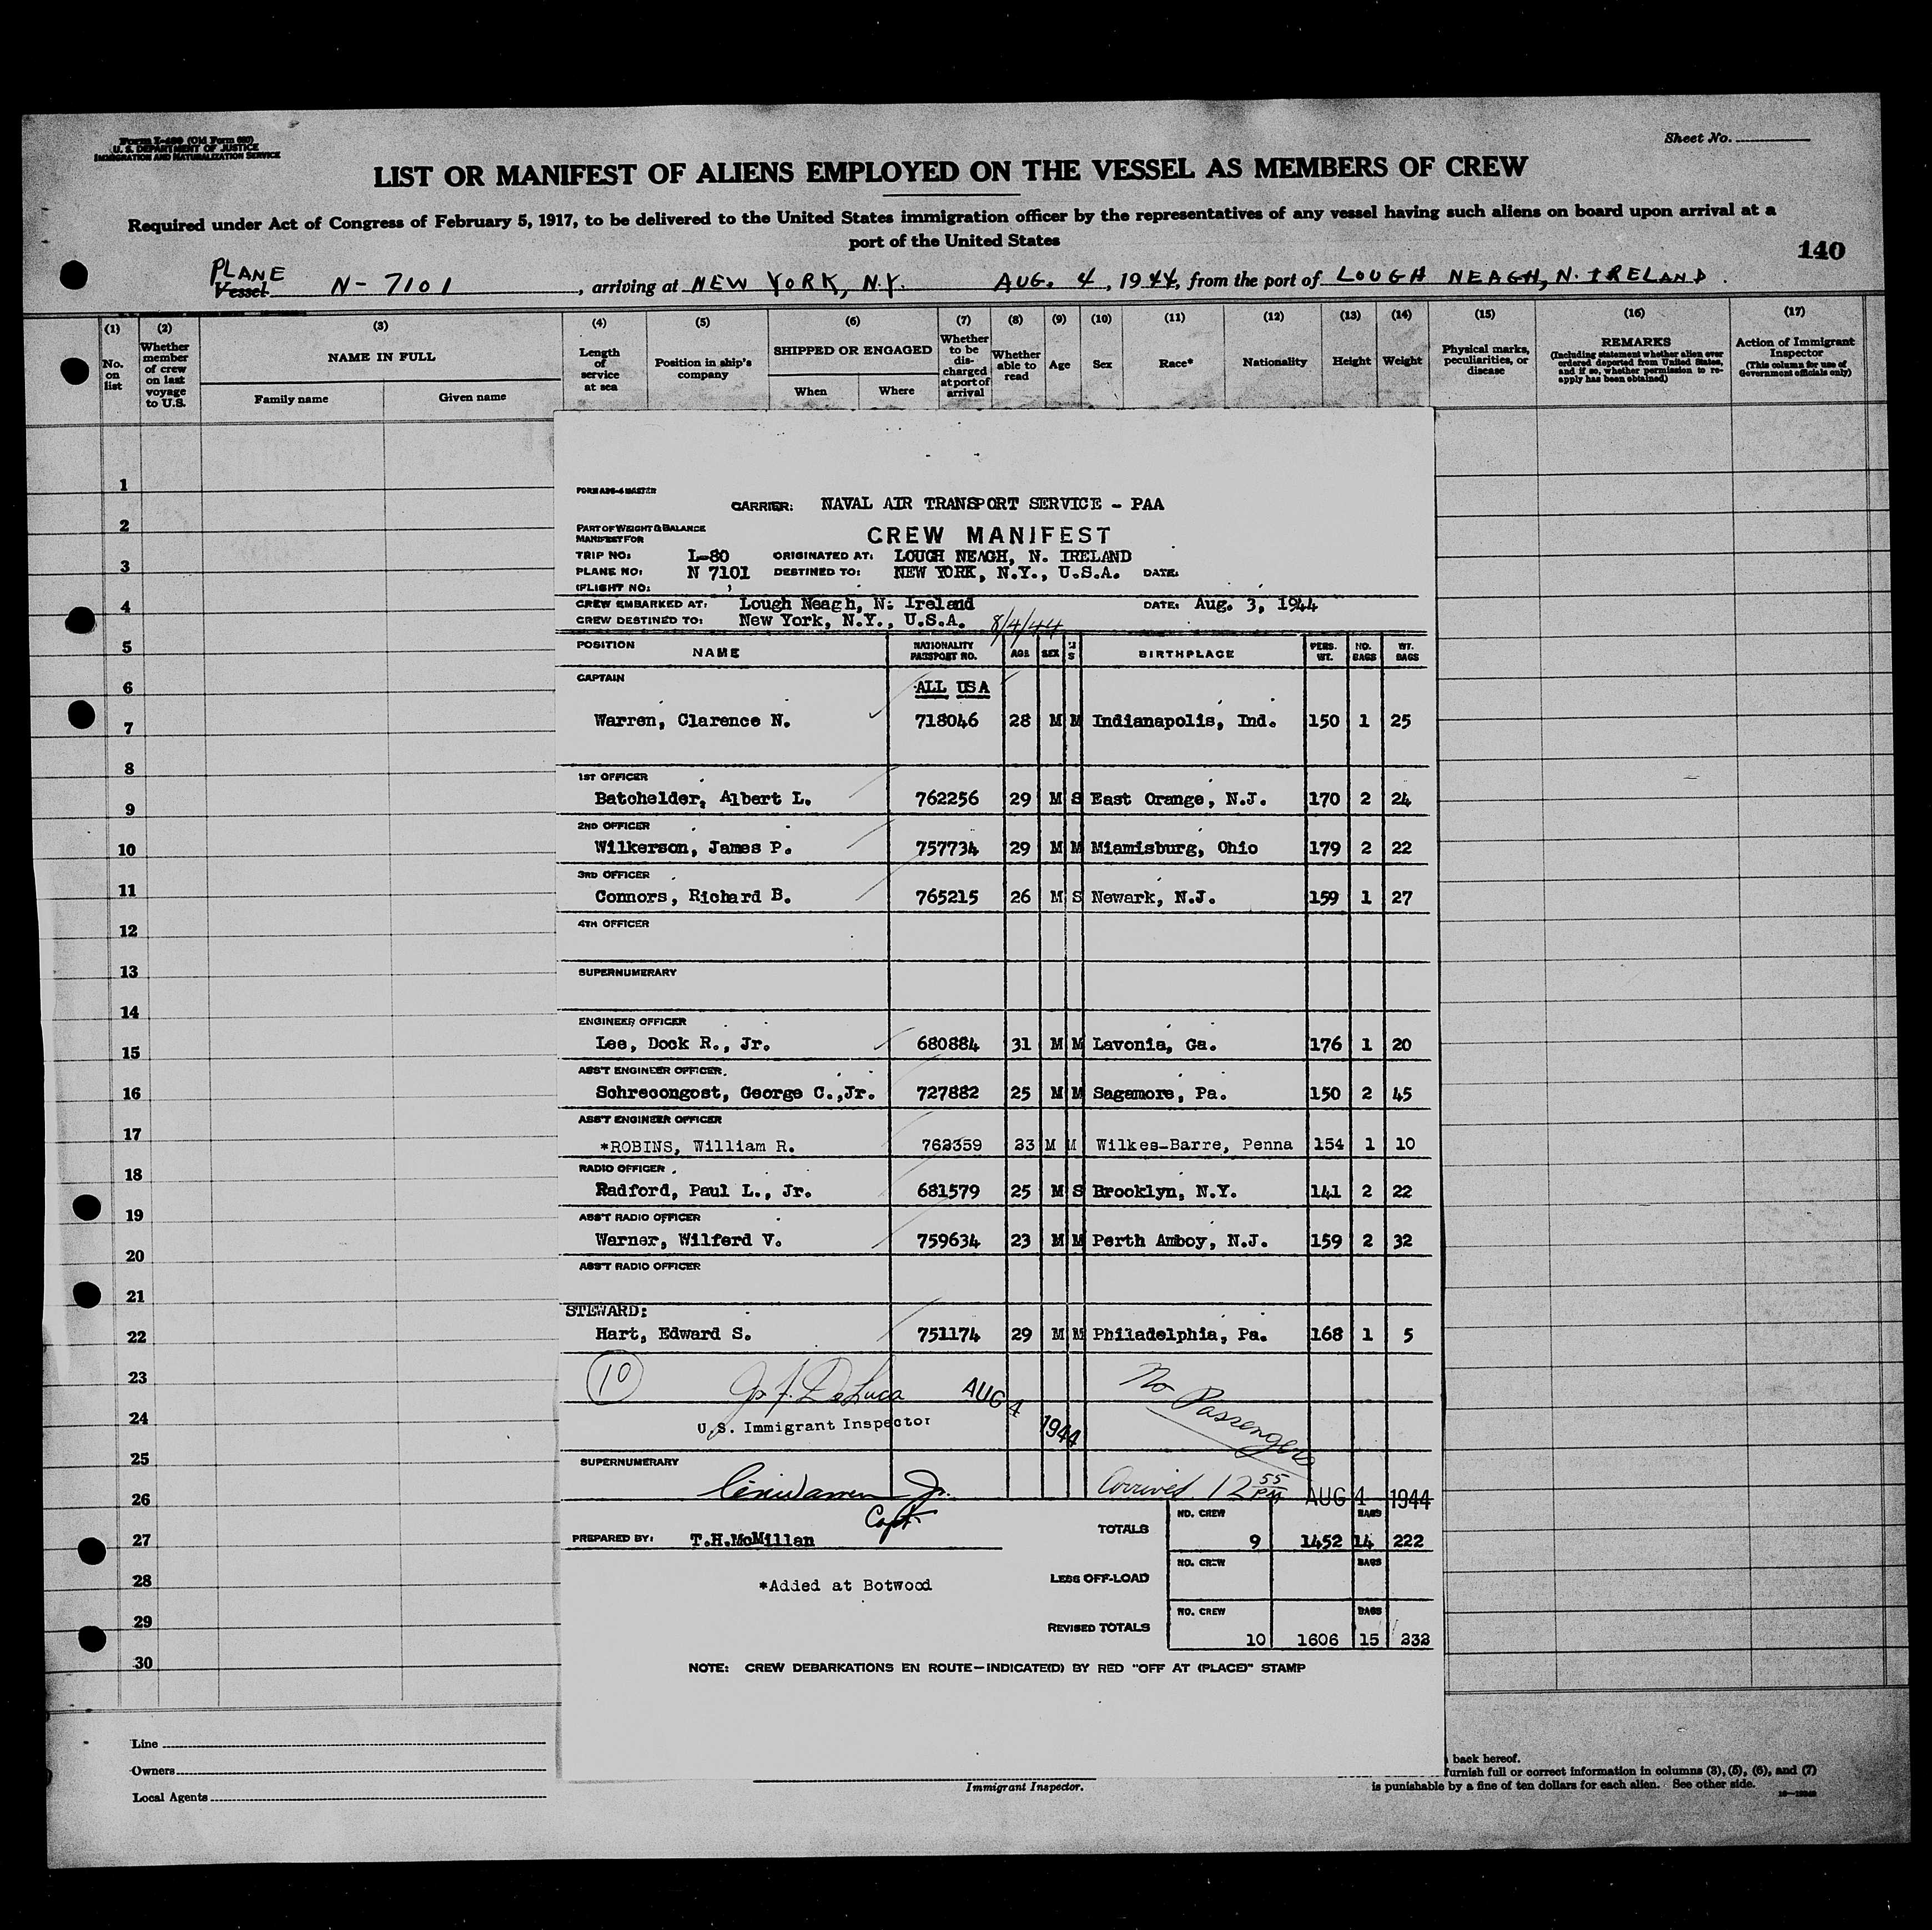 Form I-489 (Old Form 680)
U. S. DEPARTMENT OF JUSTICE
IMMIGRATION AND NATURALIZATION SERVICE
Sheet No.
LIST OR MANIFEST OF ALIENS EMPLOYED ON THE VESSEL AS MEMBERS OF CREW
Required under Act of Congress of February 5, 1917, to be delivered to the United States immigration officer by the representatives of any vessel having such aliens on board upon arrival at a
port of the United States
140
PLANE
Vessel N-7101, arriving at NEW YORK, N.Y. AUG. 4, 1944, from the port of LOUGH NEAGH, N. IRELAND
(1) (2) (3) (4) (5) (6) (7) (8) (9) (10) (11) (12) (13) (14) (15) (16) (17)
No. on list
Whether member of crew on last voyage to U.S.
NAME IN FULL
Family name Given name
Length of service at sea
Position in ship's company
SHIPPED OR ENGAGED
When Where
Whether to be discharged at port of arrival
Whether able to read
Age
Sex
Race*
Nationality
Height
Weight
Physical marks, peculiarities, or disease
REMARKS
(Including statement whether alien ever ordered deported from United States, and if so, whether permission to re-apply has been obtained)
Action of Immigrant Inspector
(This column for use of Government officials only)
1
2
3
4
5
6
7
8
9
10
11
12
13
14
15
16
17
18
19
20
21
22
23
24
25
26
27
28
29
30
CARRIER: NAVAL AIR TRANSPORT SERVICE - PAA
PART OF WEIGHT & BALANCE
MANIFEST FOR
CREW MANIFEST
TRIP NO: L-80 ORIGINATED AT: LOUGH NEAGH, N. IRELAND
PLANE NO: N 7101 DESTINED TO: NEW YORK, N.Y., U.S.A. DATE:
(FLIGHT NO:
CREW EMBARKED AT: Lough Neagh, N. Ireland DATE: Aug. 3, 1944
CREW DESTINED TO: New York, N.Y., U.S.A. 8/4/44
POSITION NAME NATIONALITY PASSPORT NO. AGE SEX M S BIRTHPLACE PERS. WT. NO. BAGS WT. BAGS
CAPTAIN
ALL USA
Warren, Clarence N. 718046 28 M M Indianapolis, Ind. 150 1 25
1ST OFFICER
Batchelder, Albert L. 762256 29 M S East Orange, N.J. 170 2 24
2ND OFFICER
Wilkerson, James P. 757734 29 M M Miamisburg, Ohio 179 2 22
3RD OFFICER
Connors, Richard B. 765215 26 M S Newark, N.J. 159 1 27
4TH OFFICER
SUPERNUMERARY
ENGINEER OFFICER
Lee, Dock R., Jr. 680884 31 M M Lavonia, Ga. 176 1 20
ASS'T ENGINEER OFFICER
Schrecongost, George C.,Jr. 727882 25 M M Sagamore, Pa. 150 2 45
ASS'T ENGINEER OFFICER
*ROBINS, William R. 762359 23 M M Wilkes-Barre, Penna 154 1 10
RADIO OFFICER
Radford, Paul L., Jr. 681579 25 M S Brooklyn, N.Y. 141 2 22
ASS'T RADIO OFFICER
Warner, Wilferd V. 759634 23 M M Perth Amboy, N.J. 159 2 32
ASS'T RADIO OFFICER
STEWARD:
Hart, Edward S. 751174 29 M M Philadelphia, Pa. 168 1 5
10
DeLuca AUG 4 1944
No Passengers
U.S. Immigrant Inspector
SUPERNUMERARY
Arrived 12 55 PM AUG 4 1944
Capt.
PREPARED BY: T.H.McMillan
TOTALS NO. CREW 9 1452 BAGS 14 222
*Added at Botwood
LESS OFF-LOAD NO. CREW BAGS
REVISED TOTALS NO. CREW 10 1606 BAGS 15 232
NOTE: CREW DEBARKATIONS EN ROUTE—INDICATE(D) BY RED "OFF AT (PLACE)" STAMP
Line
Owners
Local Agents
Immigrant Inspector.
back hereof.
furnish full or correct information in columns (3), (5), (6), and (7)
is punishable by a fine of ten dollars for each alien. See other side.